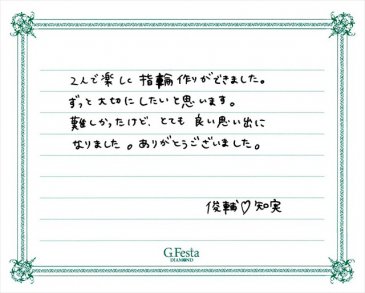 2人で楽しく指輪作りができました。
ずっと大切にしたいと思います。
難しかったけど、とても良い思い出に
なりました。ありがとうございました。
俊輔♡知実
G.Festa
DIAMOND